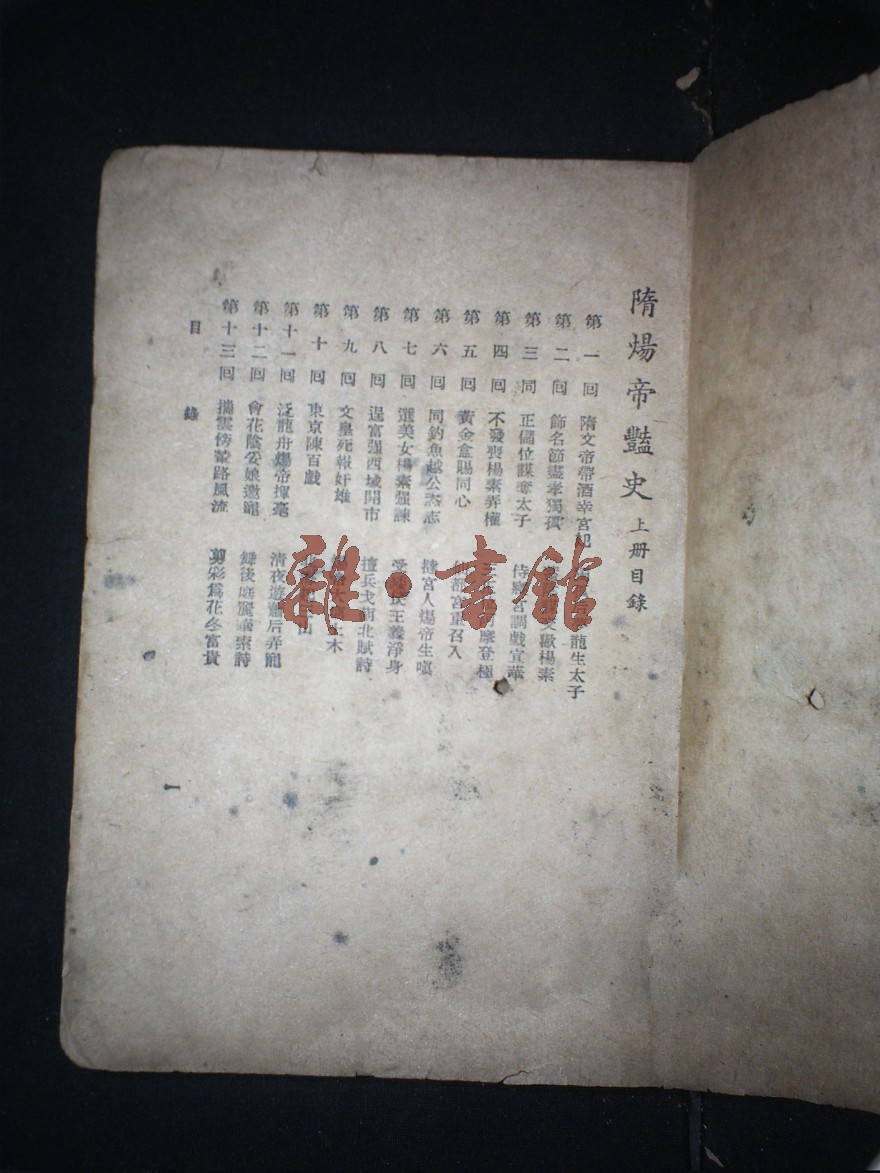 隋煬帝豔史 上册目錄
第一回 隋文帝帶酒幸宮妃 龍生太子
第二回 飾名節盡孝獨孤 歐楊素
第三囘 正儲位謀奪太子 侍寢宮調戲宣華
第四回 不發喪楊素弄權 登極
第五回 黃金盒賜同心 宮重召入
第六回 同釣魚越公恣志 撻宮人煬帝生嗔
第七回 選美女楊素强諫 受 王義淨身
第八回 逞富强西域開市 擅兵戈南北賦詩
第九回 文皇死報奸雄 土木
第十回 東京陳百戲
第十一回 泛龍舟煬帝揮毫 清夜遊蕭后弄寵
第十二回 會花陰妥娘邀寵 舞後庭麗華索詩
第十三回 攜雲傍輦路風流 剪彩爲花冬富貴
目錄
一
雜·書館